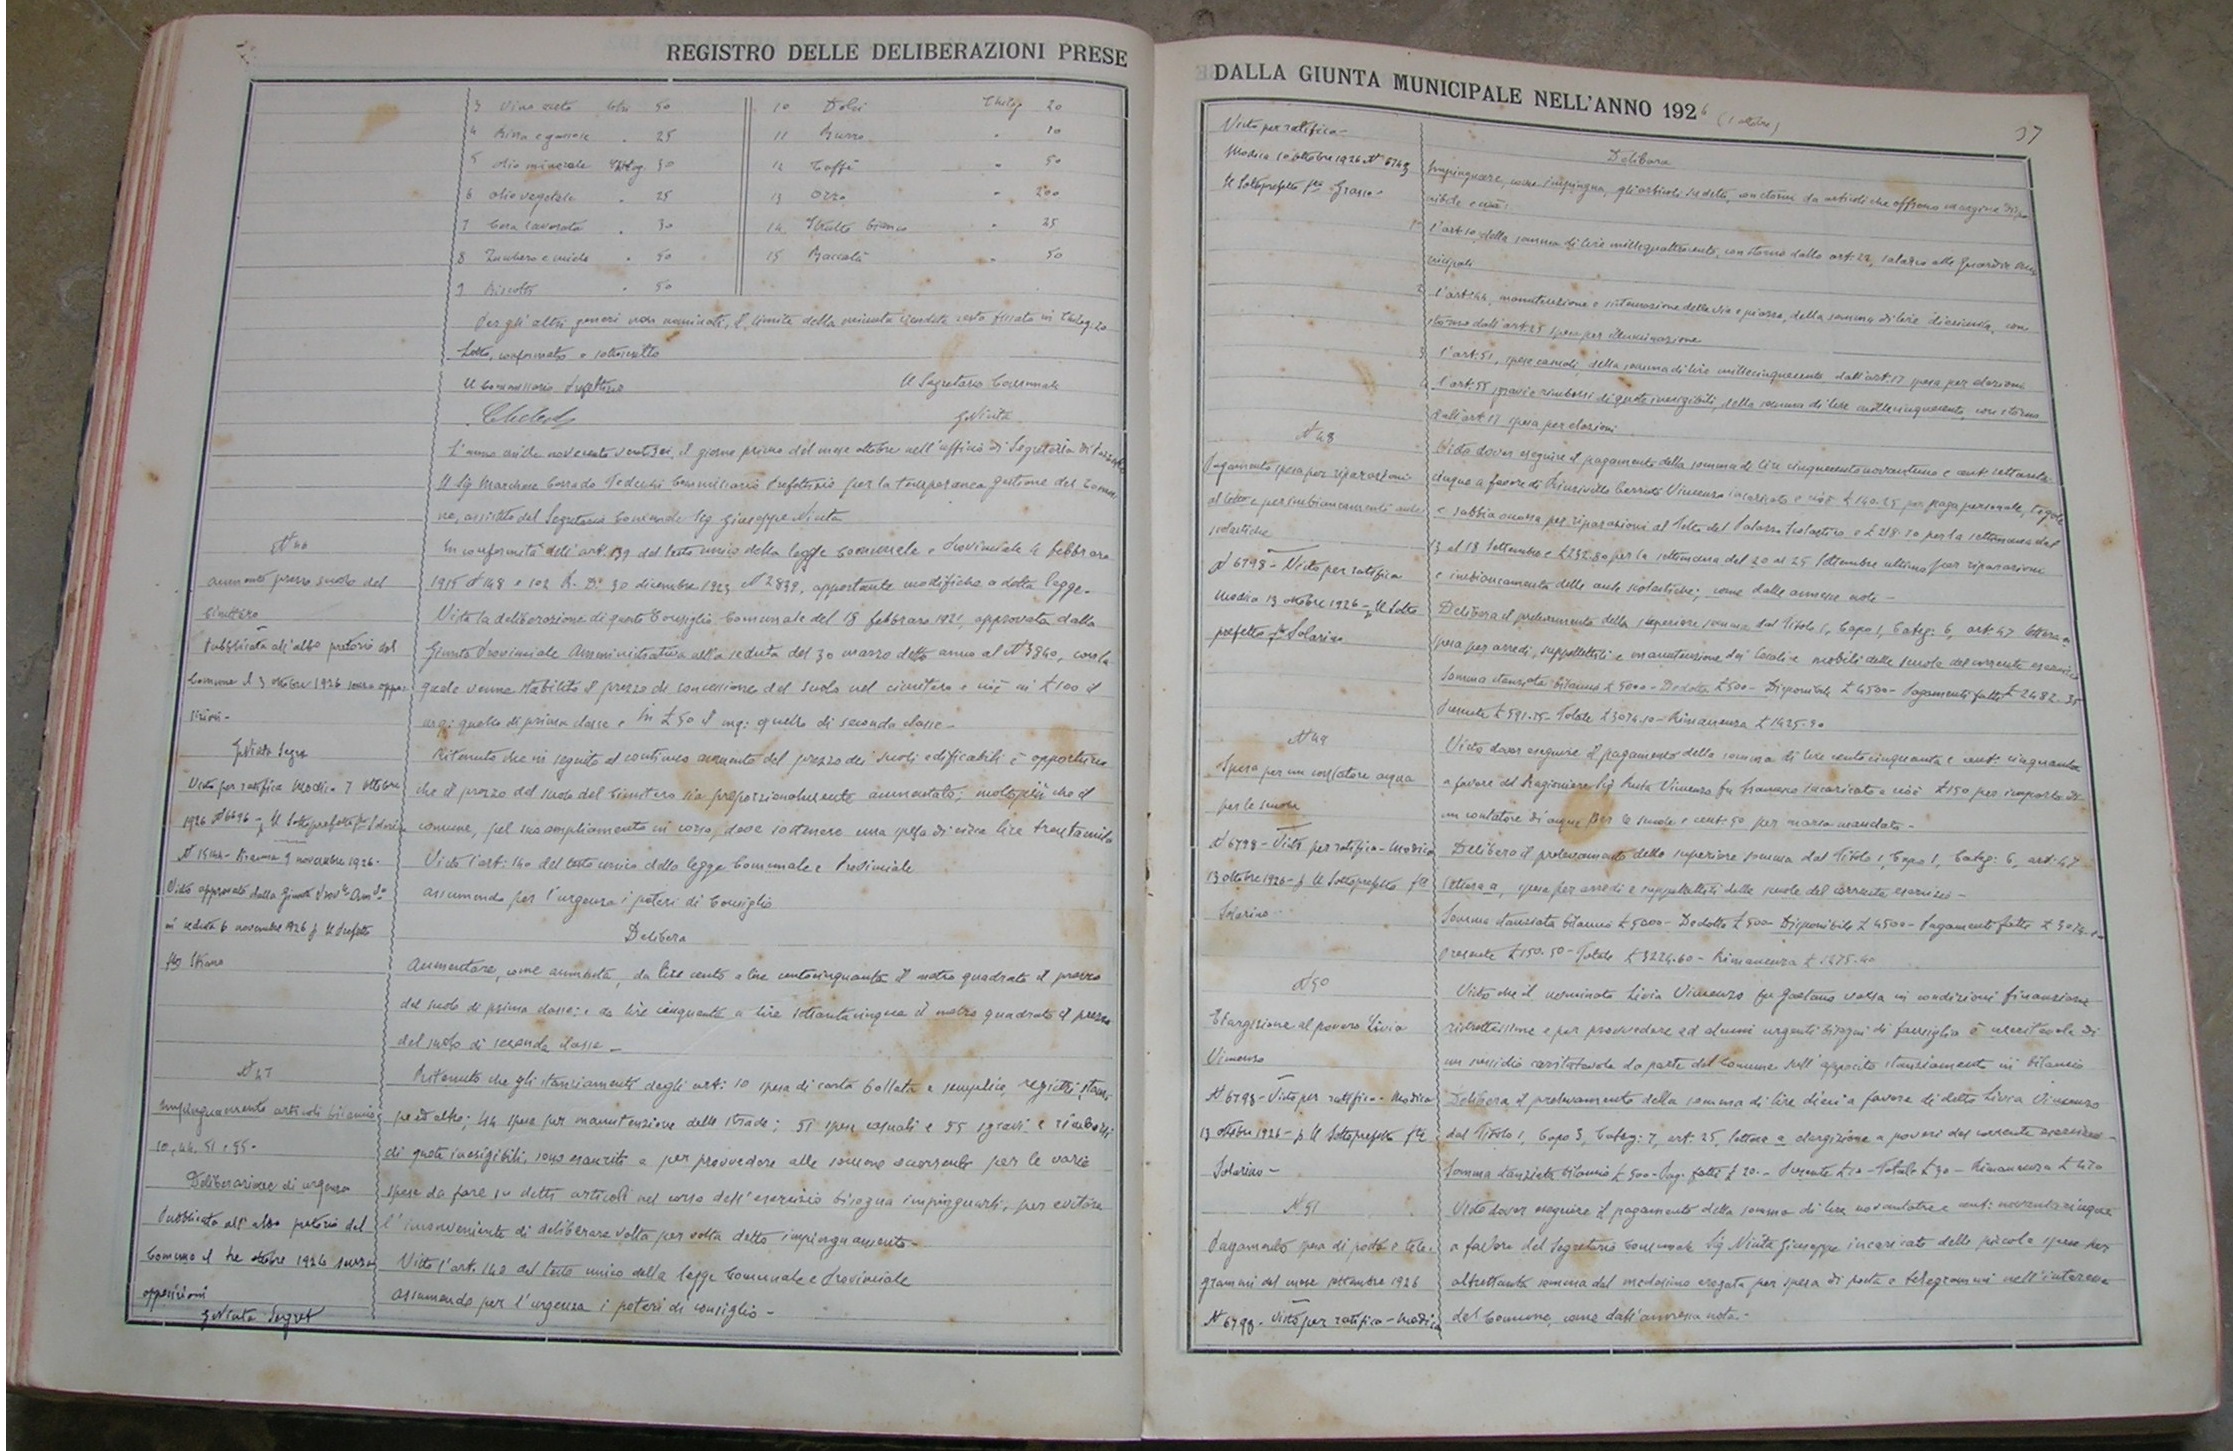 REGISTRO DELLE DELIBERAZIONI PRESE
3 Vino aceto 50
4 Birra e gassose " 25
5 Olio minerale 30
6 Olio vegetale " 25
7 Cera lavorata " 30
8 Zucchero e miele " 50
9 Biscotti " 50
10 Dolci Chilog 20
11 Burro " 10
12 Caffè " 50
13 Orzo " 200
14 Strutto bianco " 25
15 Baccalà " 50
Per gli altri generi non nominati, il limite della minuta vendita resta fissato in Chilog: 20
Letto, confermato e sottoscritto
Il Commissario Prefettizio Il Segretario Comunale
G. Niuta
L'anno mille novecento ventisei, il giorno primo del mese ottobre nell'ufficio di Segreteria di
Il Sig Marchese Corrado Tedeschi Commissario Prefettizio per la temporanea gestione del Comu-
ne, assistito del Segretario Comunale Sig Giuseppe Niuta
N 46
aumento prezzo suolo del
Cimitero
Pubblicata all'albo pretorio del
Comune il 3 ottobre 1926 senza oppo-
sizioni -
G. Niuta Segre
Visto per ratifica Modica 7 ottobre
1926 N 6696 - Il Sottoprefetto
N 15144 - Siracusa 9 novembre 1926 -
Visto approvato dalla Giunta Prov.le Amm.va
in seduta 6 novembre 1926 p. Il Prefetto
In conformità dell'art. 139 del testo unico della legge Comunale e Provinciale 4 febbraio
1915 N 148 e 102 R. D. 30 dicembre 1923 N 2839, apportante modifiche a detta legge -
Vista la deliberazione di questo Consiglio Comunale del 18 febbraio 1921, approvata dalla
Giunta Provinciale Amministrativa nella seduta del 30 marzo detto anno al N 3840, con la
quale venne stabilito il prezzo di concessione del suolo nel cimitero e cioè in £ 100 il
mq: quello di prima classe e in £ 50 il mq: quello di seconda classe -
Ritenuto che in seguito al continuo aumento del prezzo dei suoli edificabili è opportuno
che il prezzo del suolo del Cimitero sia proporzionalmente aumentato; molto più che il
comune, pel suo ampliamento in corso, deve sostenere una spesa di circa lire trentamila
Visto l'art: 140 del testo unico della legge Comunale e Provinciale
assumendo per l'urgenza i poteri di Consiglio
Delibera
Aumentare, come aumenta, da lire cento a lire centocinquanta il metro quadrato il prezzo
del suolo di prima classe; e da lire cinquanta a lire settantacinque il metro quadrato il prezzo
del suolo di seconda classe -
N 47
Impinguamento articoli bilancio
10, 44, 51 e 55 -
Deliberazione di urgenza
Pubblicata all'albo pretorio del
Comune il tre ottobre 1926 senza
opposizioni
G. Niuta Segret
Ritenuto che gli stanziamenti degli art: 10 spesa di carta bollata e semplice, registri, stam-
pe ed altro; 44 spese per manutenzione delle strade; 51 spese casuali e 55 sgravi e rimborsi
di quote inesigibili, sono esauriti e per provvedere alle somme occorrenti per le varie
spese da fare su detti articoli nel corso dell'esercizio bisogna impinguarli, per evitare
l'inconveniente di deliberare volta per volta detto impinguamento -
Visto l'art. 140 del testo unico della legge Comunale e Provinciale
assumendo per l'urgenza i poteri di consiglio -
DALLA GIUNTA MUNICIPALE NELL'ANNO 1926 (1 ottobre)
37
Visto per ratifica -
Modica 10 ottobre 1926 N 6743
Il Sottoprefetto fto Grasso -
Delibera
Impinguare, come impingua, gli articoli su detti, con storni da articoli che offrono margine dispo-
nibile e cioè:
1° l'art 10, della somma di lire millequattrocento, con storno dallo art: 22, salario alle Guardie Mu-
nicipali
2 l'art: 44, manutenzione e sistemazione delle vie e piazze, della somma di lire diecimila, con
storno dall'art 23 spesa per illuminazione
3 l'art: 51, spese casuali della somma di lire millecinquecento dall'art: 17 spesa per elezioni
4 l'art: 55 sgravi e rimborsi di quote inesigibili, della somma di lire millecinquecento, con storno
dall'art 17 spesa per elezioni
N 48
Pagamento spesa per riparazioni
al tetto e per imbiancamenti aule
scolastiche
N 6798 - Visto per ratifica
Modica 13 ottobre 1926 - p. Il Sotto
prefetto fto Solarino
Visto dover eseguire il pagamento della somma di lire cinquecentonovantuno e cent. settanta-
cinque a favore di Vincenzo incaricato e cioè £ 140.25 per paga personale, tegole
e sabbia occorsa per riparazioni al tetto del Palazzo Scolastico e £ 218.70 per la settimana dal
13 al 18 Settembre e £ 232.80 per la settimana del 20 al 25 Settembre ultimo per riparazioni
e imbiancamento delle aule scolastiche; come dalle annesse note -
Delibera il prelevamento della superiore somma dal Titolo 1, Capo 1, Categ: 6, art 47 lettera a
spesa per arredi, suppellettili e manutenzione dei locali e mobili delle scuole del corrente esercizio
Somma stanziata bilancio £ 5000 - Dedotte £ 500 - Disponibile £ 4500 - Pagamenti fatti £ 2482.35
Presente £ 591.75 - Totale £ 3074.10 - Rimanenza £ 1425.90
N 49
Spesa per un contatore acqua
per le scuole
N 6798 - Visto per ratifica - Modica
13 ottobre 1926 - p. Il Sottoprefetto fto
Solarino -
Visto dover eseguire il pagamento della somma di lire centocinquanta e cent: cinquanta
a favore del Ragioniere Sig Vincenzo fu Francesco incaricato e cioè £ 150 per importo di
un contatore di acqua per le scuole e cent: 50 per marca mandato -
Delibera il prelevamento della superiore somma dal Titolo 1, Capo 1, Categ: 6, art: 47
lettera a, spesa per arredi e suppellettili delle scuole del corrente esercizio -
Somma stanziata bilancio £ 5000 - Dedotte £ 500 - Disponibile £ 4500 - Pagamenti fatti £ 3074.10
Presente £ 150.50 - Totale £ 3224.60 - Rimanenza £ 1275.40
N 50
Elargizione al povero Livia
Vincenzo
N 6798 - Visto per ratifica - Modica
13 ottobre 1926 - p. Il Sottoprefetto fto
Solarino -
Visto che il nominato Livia Vincenzo fu Gaetano versa in condizioni finanziarie
ristrettissime e per provvedere ad alcuni urgenti bisogni di famiglia è meritevole di
un sussidio caritatevole da parte del Comune sull'apposito stanziamento in bilancio
Delibera il prelevamento della somma di lire dieci a favore di detto Livia Vincenzo
dal Titolo 1, Capo 3, Categ: 7, art. 25, lettera a elargizione a poveri del corrente esercizio -
Somma stanziata bilancio £ 500 - Pag: fatti £ 20 - Presente £ 10 - Totale £ 30 - Rimanenza £ 470
N 51
Pagamento spesa di posta e tele-
grammi del mese settembre 1926
N 6798 - Visto per ratifica - Modica
Visto dover eseguire il pagamento della somma di lire novantatre e cent: novantacinque
a favore del Segretario Comunale Sig Niuta Giuseppe incaricato delle piccole spese per
altrettanta somma dal medesimo erogata per spesa di posta e telegrammi nell'interesse
del Comune, come dall'annessa nota -